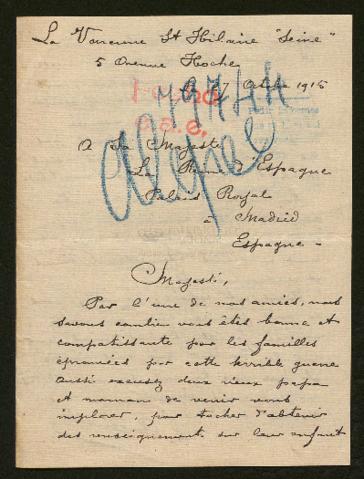 La Varenne St Hilaire "Seine"
5 Avenue Hoche
le 27 Octobre 1915
79744
A Sa Majesté
La Reine d'Espagne
Palais Royal
à Madrid
Espagne -
Majesté,
Par l'une de nos amies, nous
savons combien vous êtes bonne et
compatissante pour les familles
éprouvées par cette terrible guerre
aussi excusez deux vieux papa
et maman de venir vous
implorer, pour tacher d'obtenir
des renseignements sur leur enfant